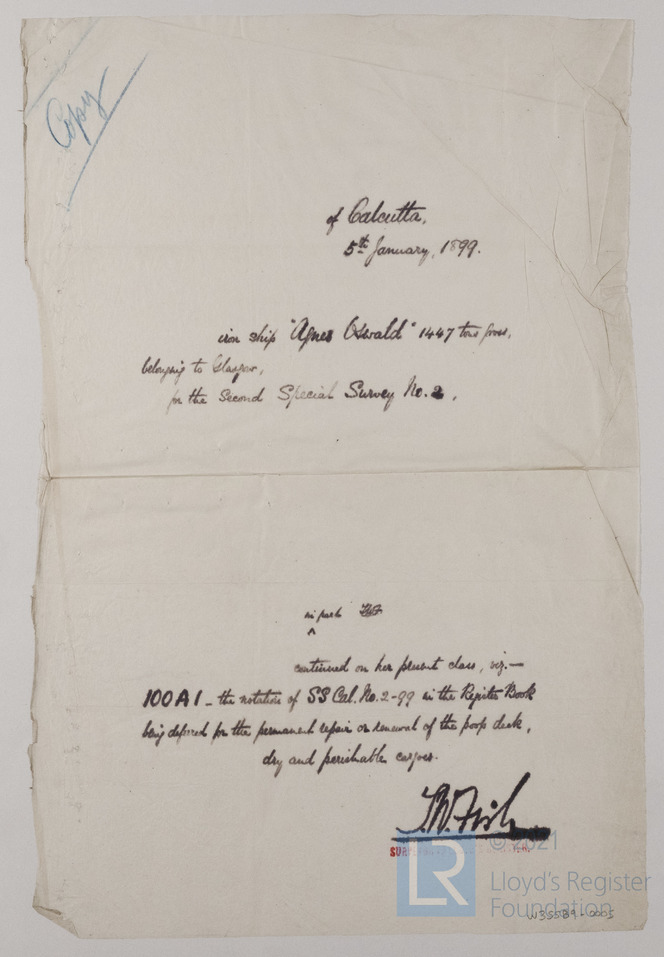 Copy
of Calcutta,
5th January, 1899.
iron ship "Agnes Oswald" 1447 tons gross,
belonging to Glasgow,
for the Second Special Survey No. 2,
in part
^
continued on her present class, viz:—
100A1 – the notation of SS Cal. No. 2-99 in the Register Book
being deferred for the permanent repair or renewal of the poop deck,
dry and perishable cargoes.
T.W. Fish
LR
© 2021
Lloyd's Register
Foundation
W355B9-0005